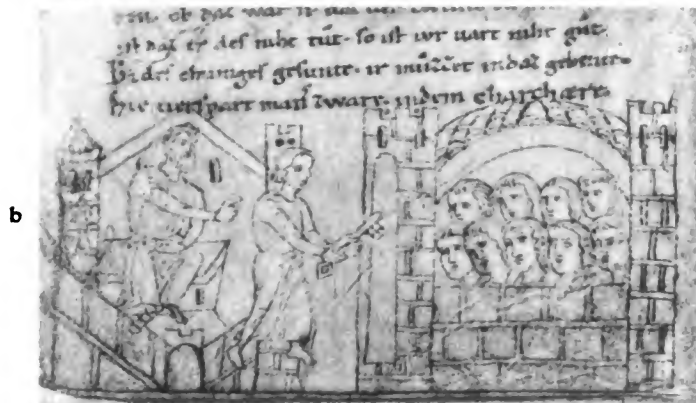 ob daz war ir
ist daz er des niht tuͦt. so ist iwr uart niht guͦt.
Bi des chuniges gesunte. ir muͦzzet in daz gebente.
Hie uerspart man zware. in dem charchære.
b